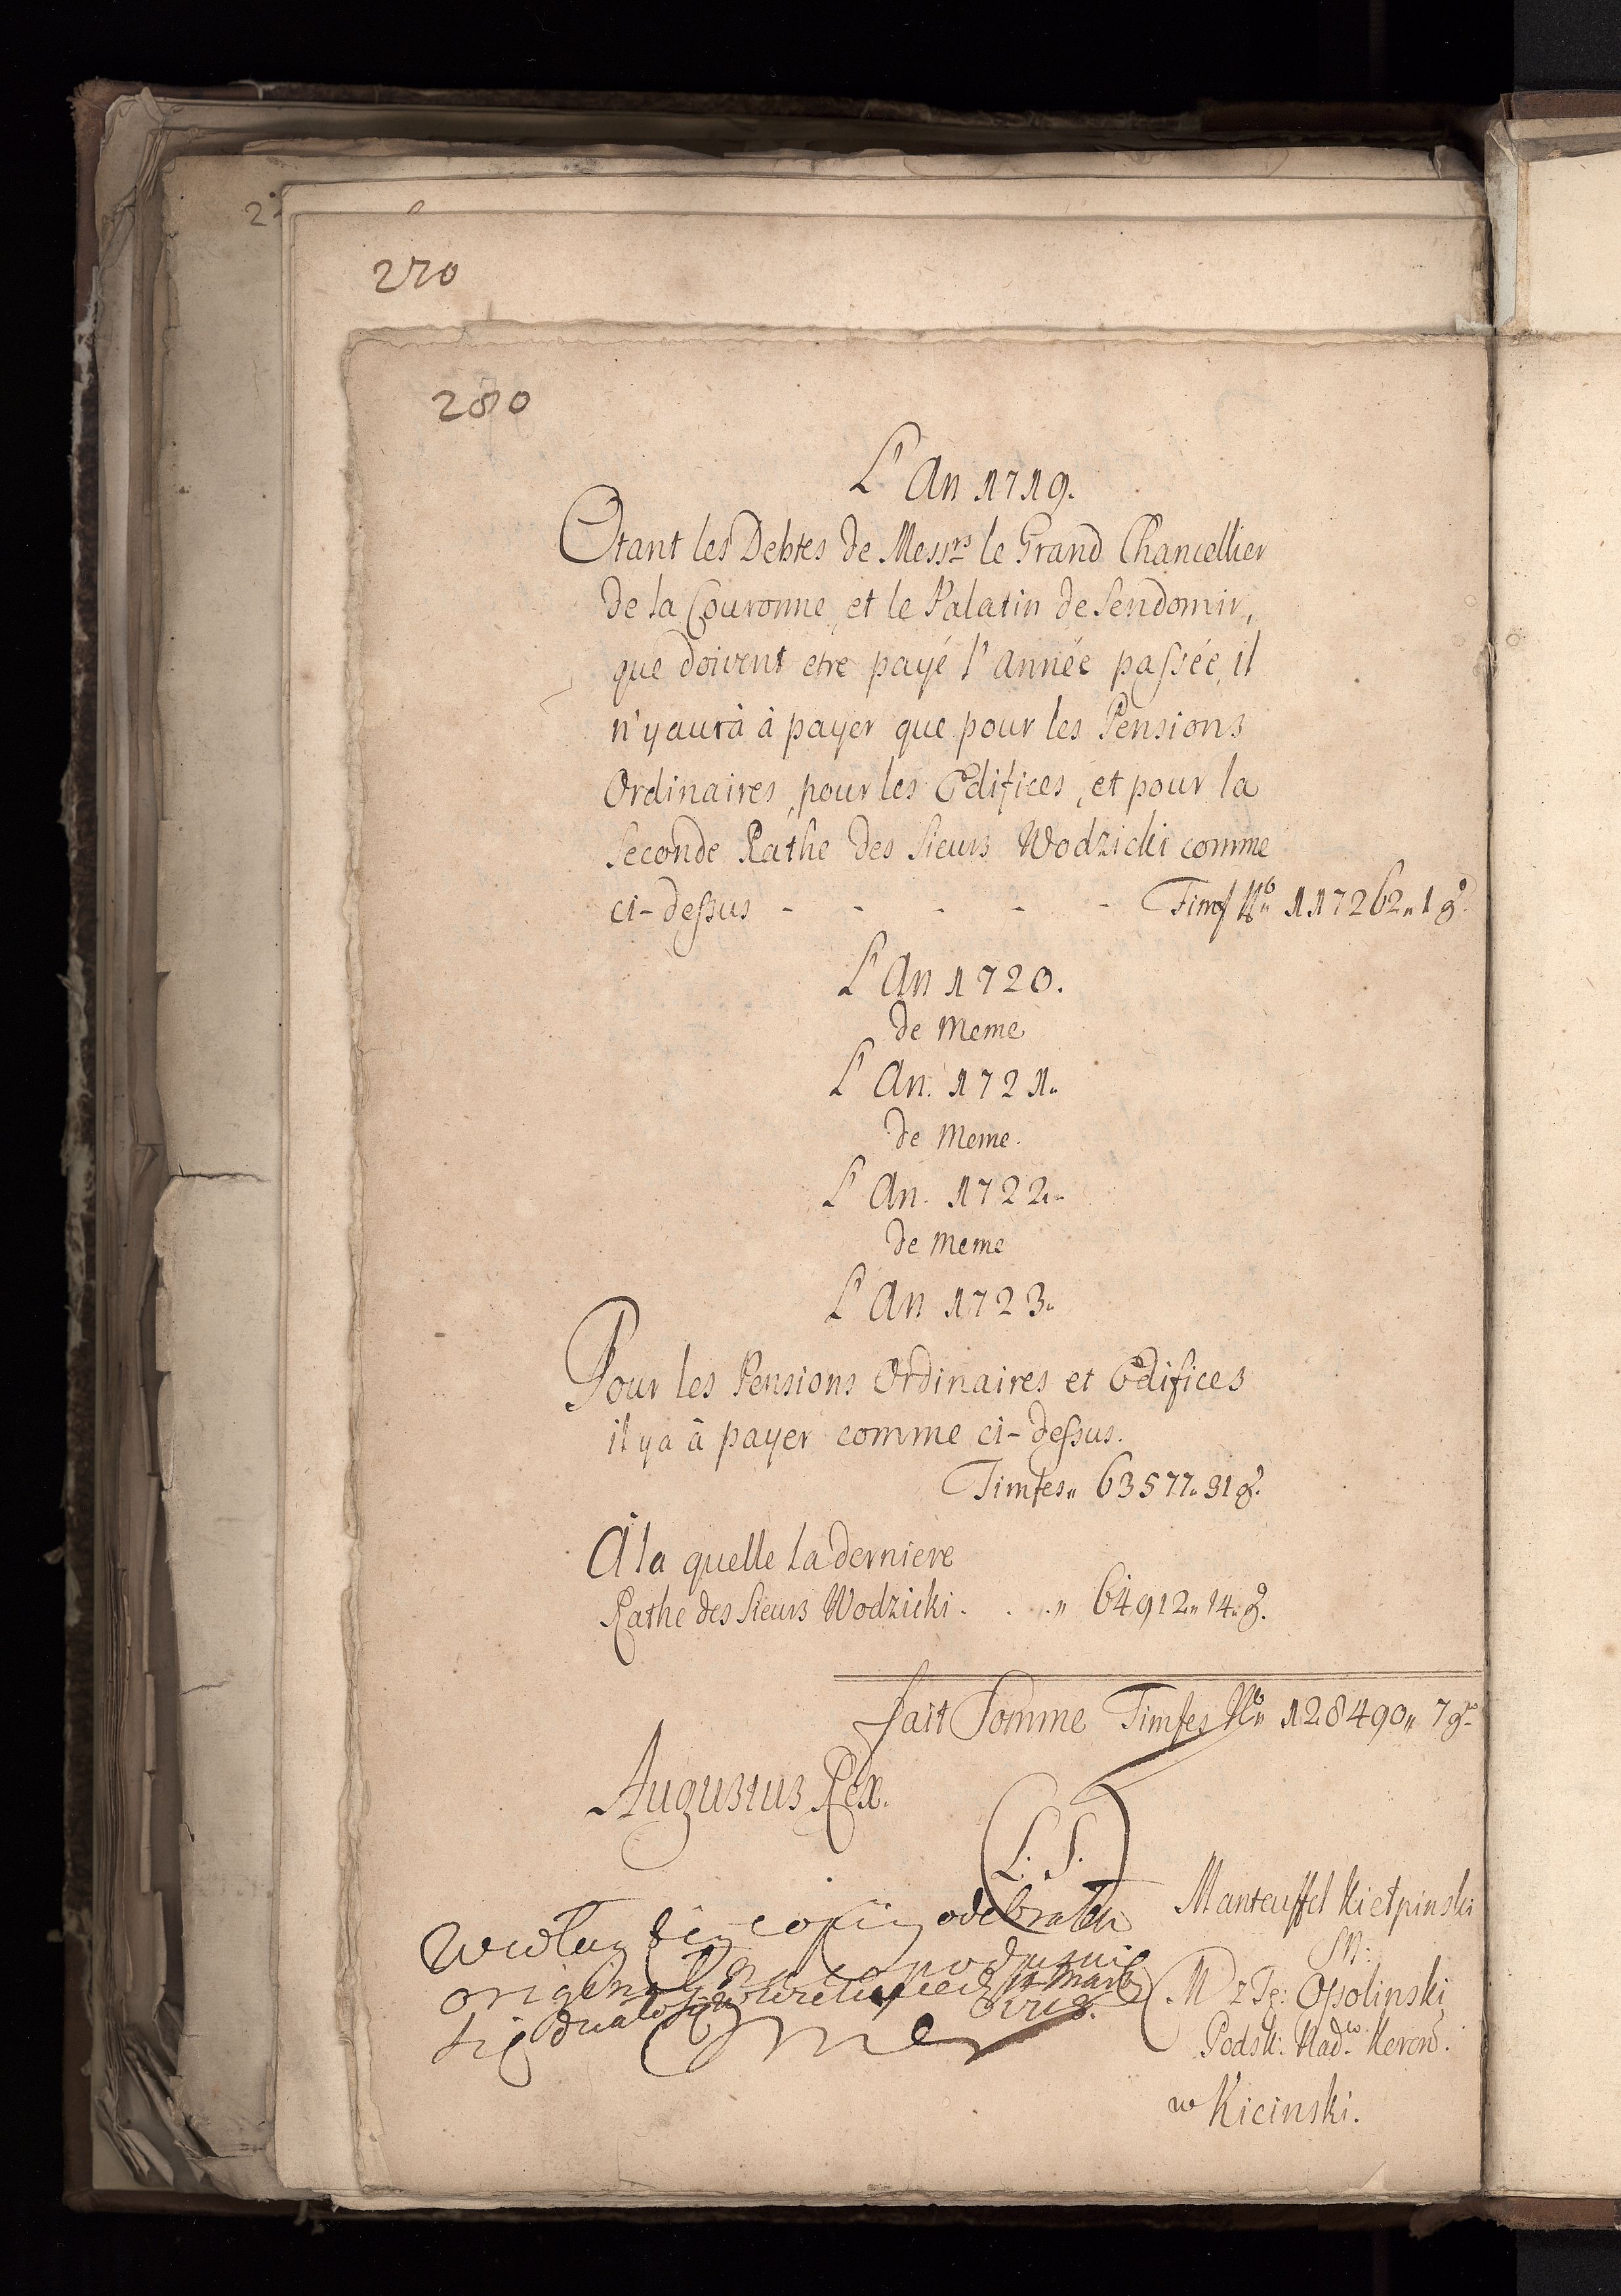 270
280
L'An 1719.
Otant les Debtes de Messrs le Grand Chancellier
de la Couronne, et le Palatin de Sendomir,
que doivent etre payé l'année passée, il
n'y aurà à payer que pour les Pensions
Ordinaires, pour les Edifices, et pour la
Seconde Rathe des Sieurs Wodzicki comme
ci-dessus - - - - - Timf No 117262 „ 1 g.
L'An 1720.
de Meme
L'An. 1721.
de Meme.
L'An. 1722.
de Meme
L'An 1723.
Pour les Pensions Ordinaires et Edifices
il y a à payer comme ci-dessus.
Timfes „ 63577 „ 31 g.
A la quelle la derniere
Rathe des Sieurs Wodzicki . . . „ 64912 „ 14 „ g.
fait Somme Timfes No 128490 „ 7 g.
Augustus Rex.
(L. S.)
Manteuffel Kiełpinski
M z Tę: Ossolinski
Podsk: Nadw. Koron.
w Kicinski.